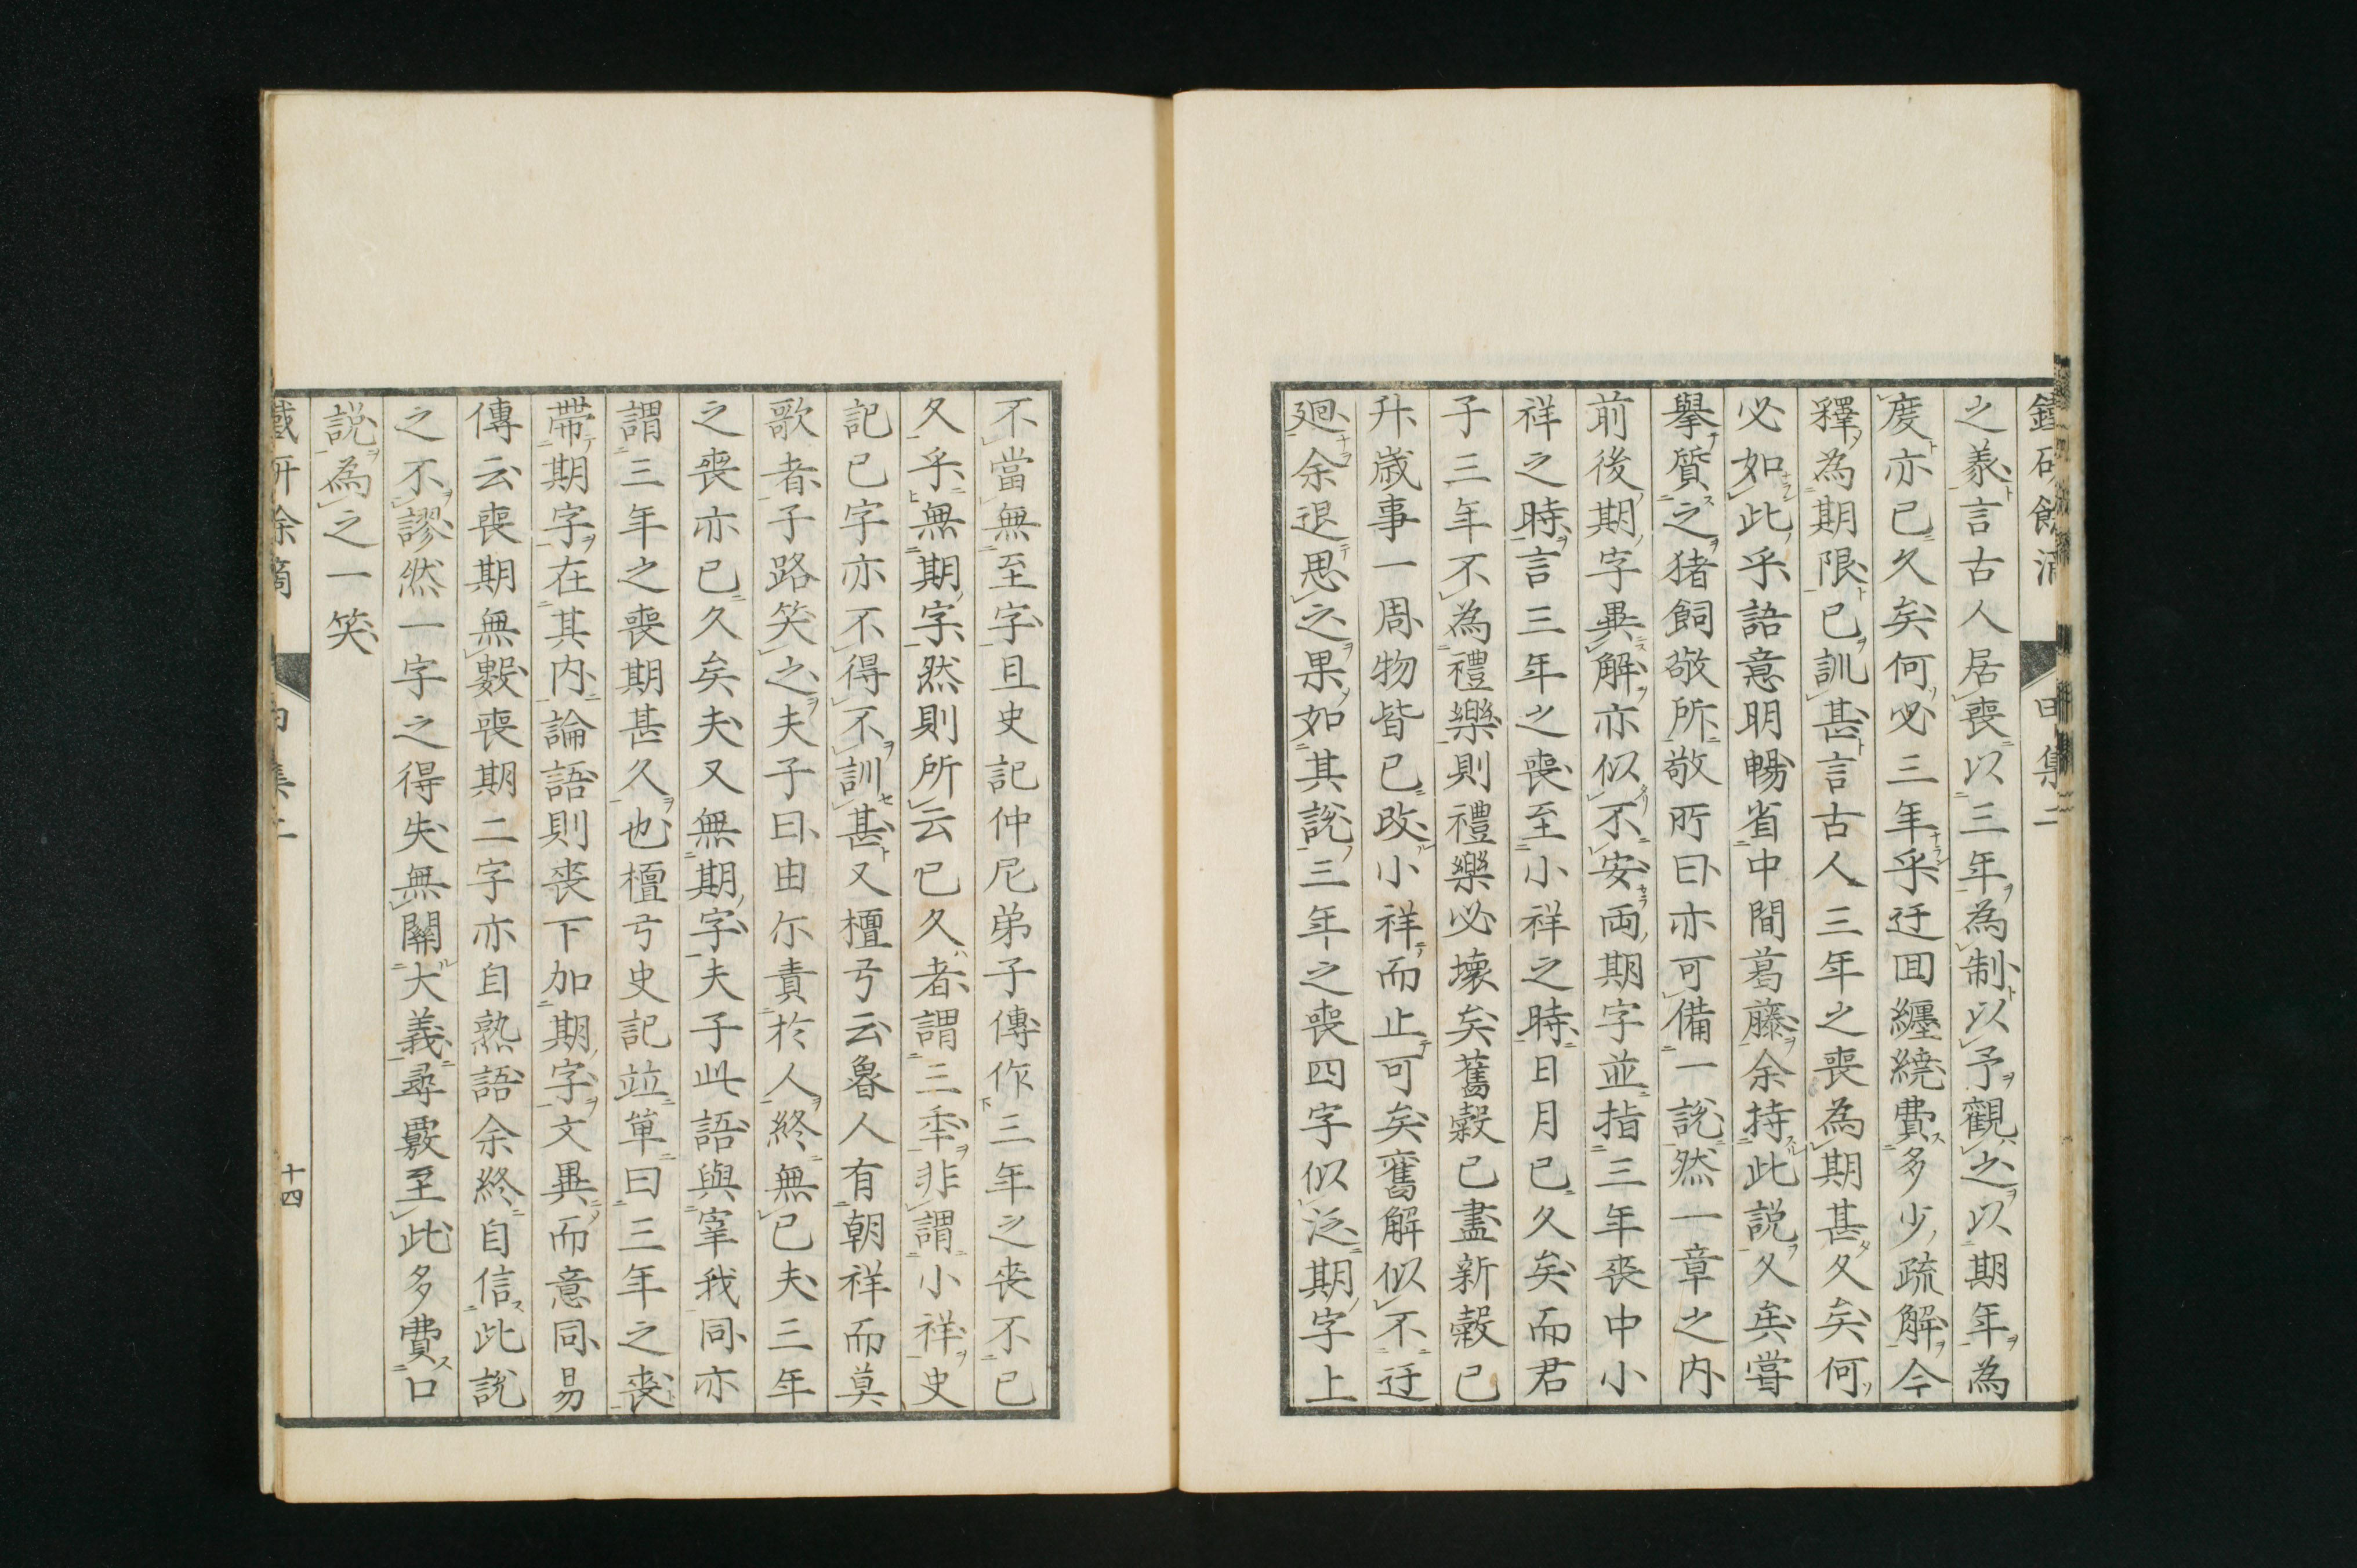 之義言古人居喪以三年為制以予觀之以期年為
度亦已久矣何必三年乎迂回纏繞費多少疏解今
釋為期限已訓甚言古人三年之喪為期甚久矣何
必如此乎語意明暢省中間葛藤余持此說久矣嘗
擧質之猪飼敬所敬所曰亦可備一說然一章之内
前後期字異解亦似不安両期字並指三年喪中小
祥之時言三年之喪至小祥之時日月已久矣而君
子三年不為禮樂則禮樂必壞矣舊穀已盡新穀已
升歳事一周物皆已改小祥而止可矣舊解似不迂
廻余退思之果如其說三年之喪四字似泛期字上
不當無至字且史記仲尼弟子傳作三年之喪不已
久乎無期字然則所云已久者謂三年非謂小祥史
記已字亦不得不訓甚又檀弓云魯人有朝祥而莫
歌者子路笑之夫子曰由尓責於人終無已夫三年
之喪亦已久矣夫又無期字夫子此語與宰我同亦
謂三年之喪期甚久也檀弓史記竝單曰三年之喪
帶期字在其内論語則喪下加期字文異而意同易
傳云喪期無數喪期二字亦自熟語余終自信此說
之不謬然一字之得失無關大義尋覈至此多費口
說為之一笑
十四